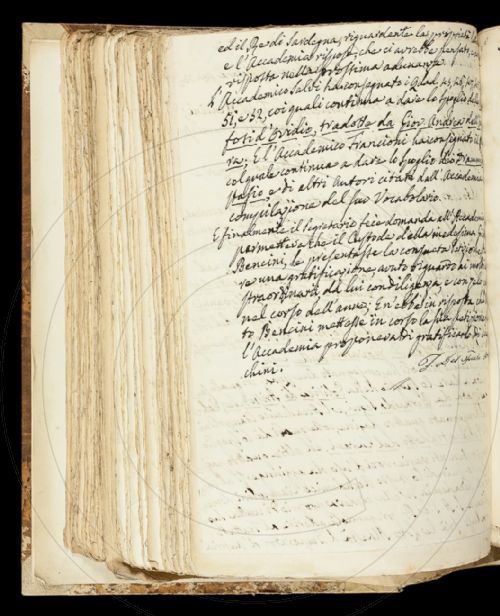 ed il Re di Sardegna, riguardante la proprietà
e l'Accademia rispose, che ci avrebbe pensato, e
risposta nella prossima adunanza.
L'Accademico Salvi ha consegnato i Quad.
51, e 52, coi quali continua a dare lo spoglio delle
foti d'Ovidio, tradotte da Giov. Andrea dell'
ra. E l'Accademico Francioni ha consegnato il
col quale continua a dare lo spoglio del
stasio, e di altri Autori citati dall'Accademia
compilazione del suo Vocabolario.
E finalmente il Segretario fece domanda all'Accademia
permetteva che il Custode della medesima
Bencini, le presentasse la consueta
re una gratificazione, avuto riguardo ai
straordinarj, da lui con diligenza, e con zelo
nel corso dell'anno; Ed ebbe in risposta che
to Bencini mettesse in corso la sua petizione
l'Accademia proponevasi gratificarlo di
chini.